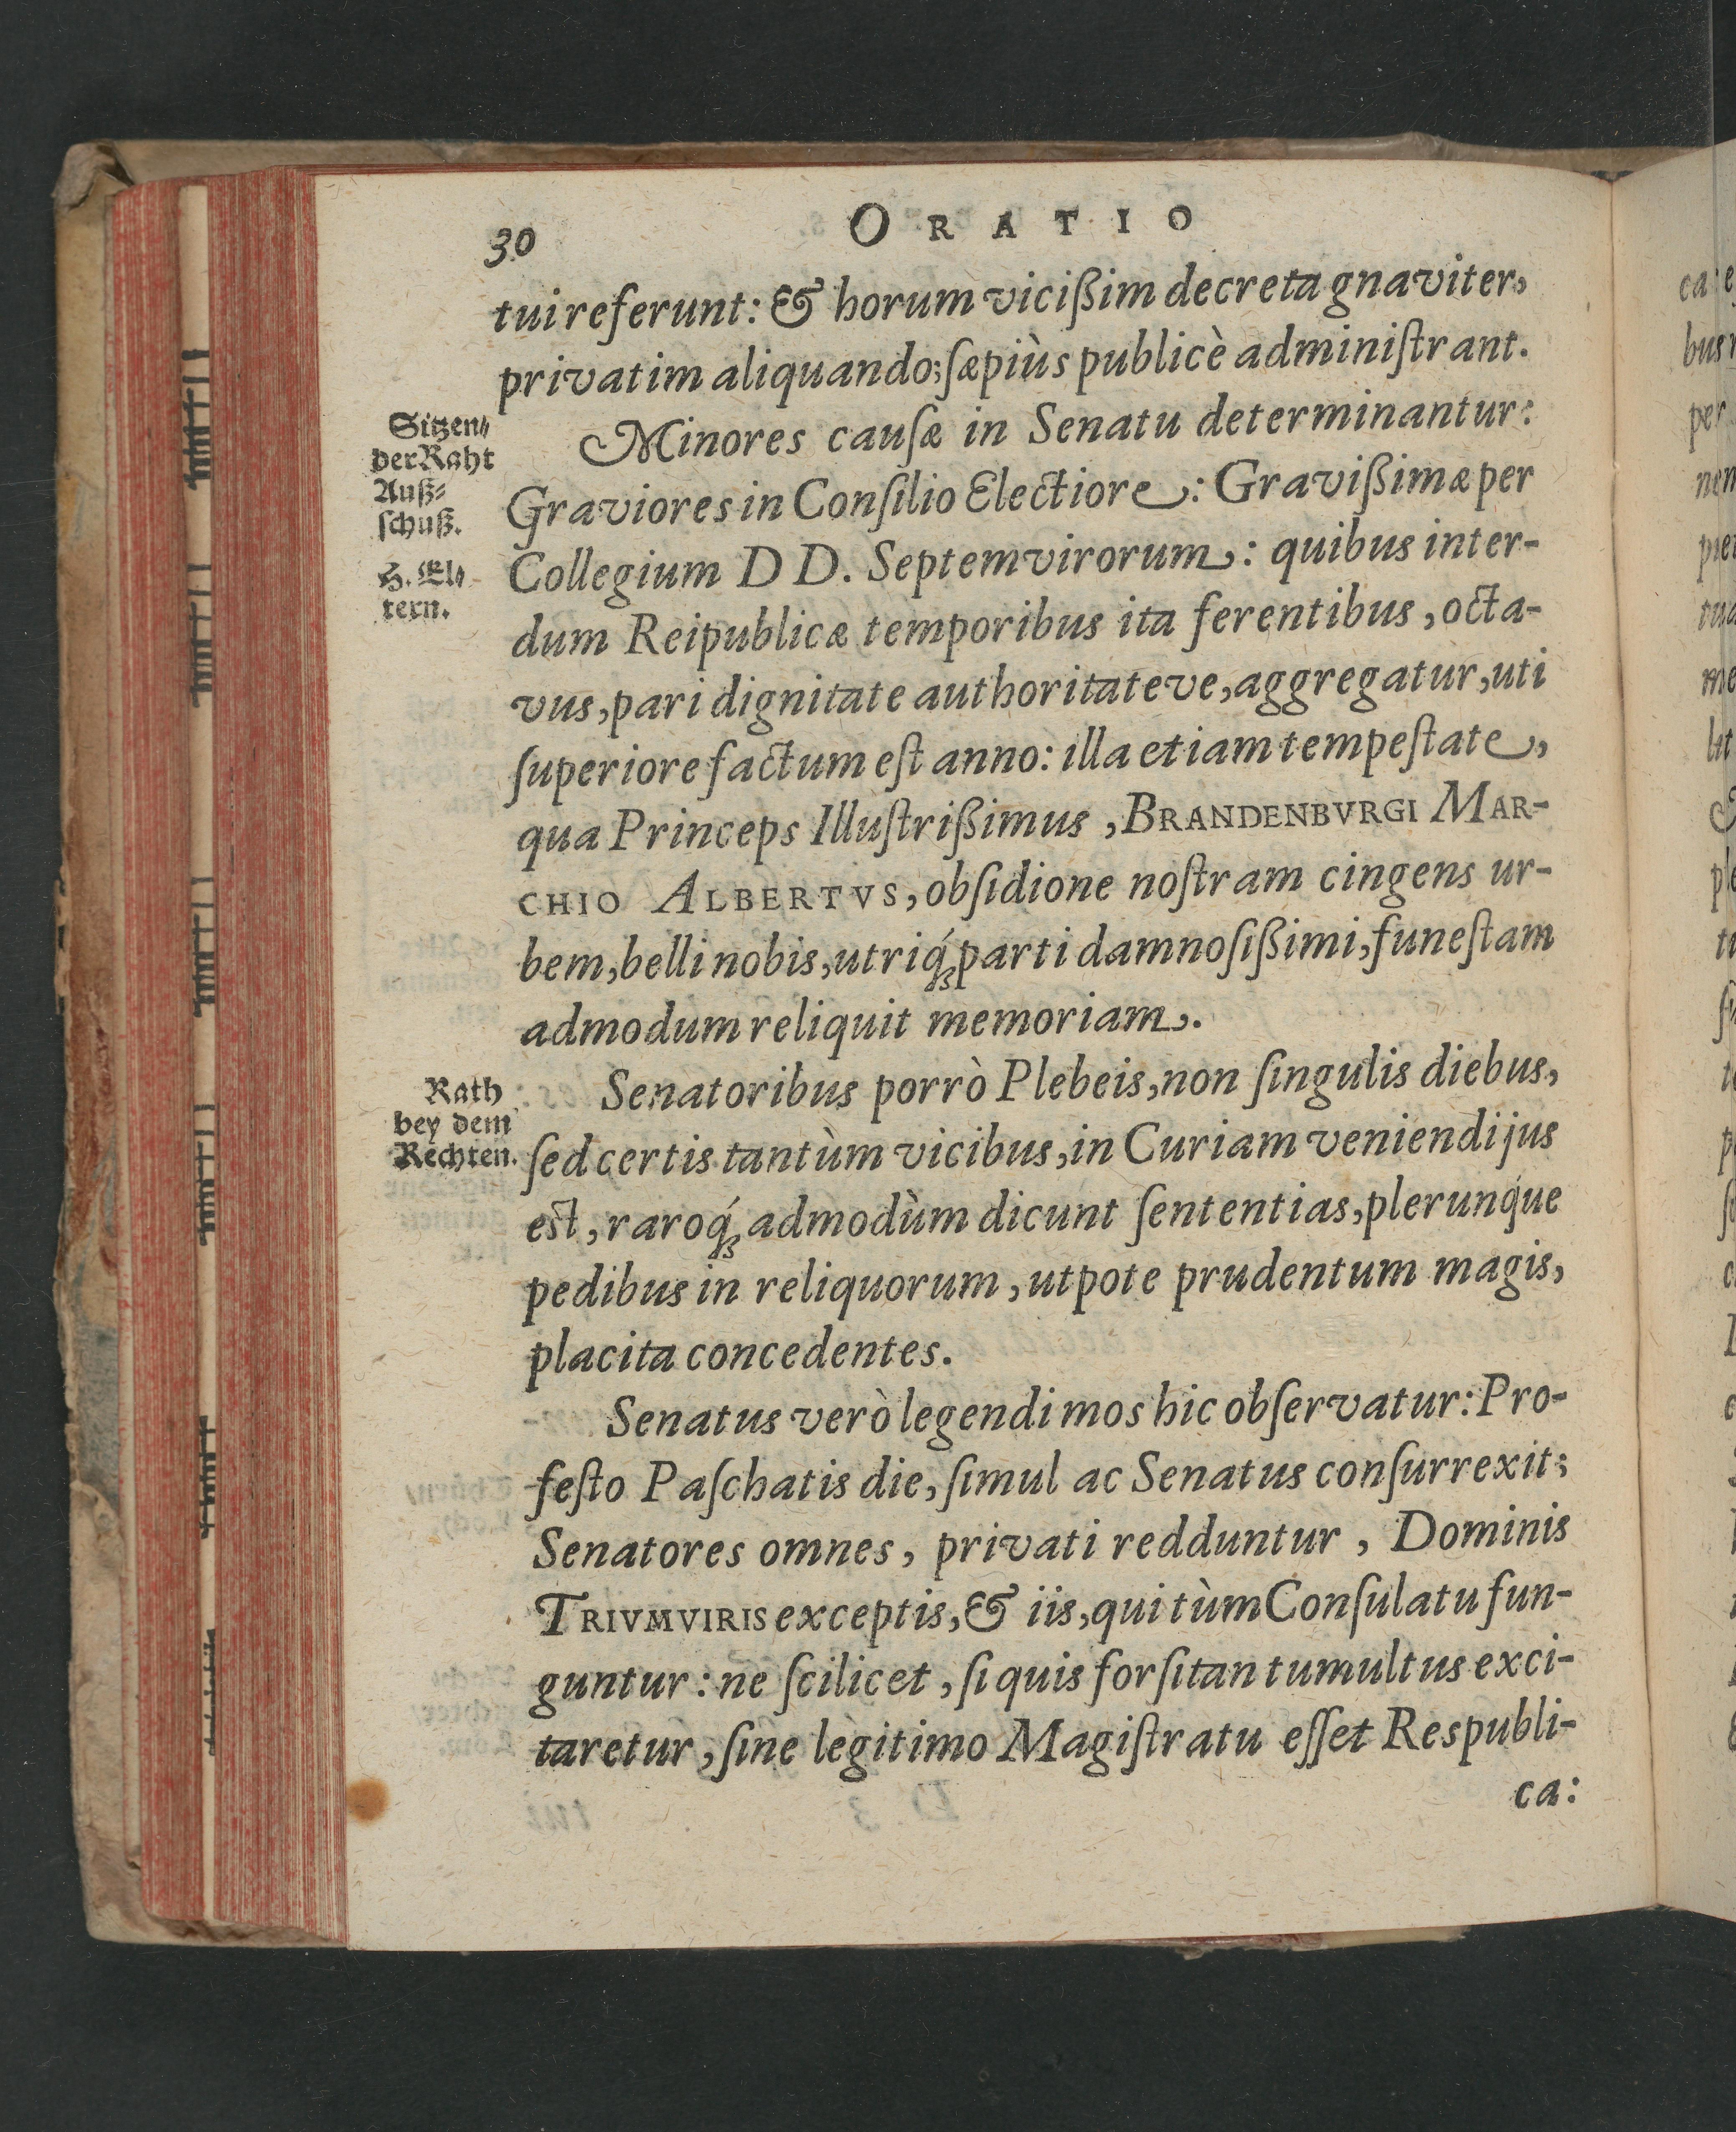 30
ORATIO
tui referunt: & horum vicißim decreta gnaviter,
privatim aliquando; ſæpiùs publicè adminiſtrant.
Sitzen⸗
der Raht
Auß⸗
ſchuß.
H. El⸗
tern.
Minores cauſæ in Senatu determinantur:
Graviores in Conſilio Electiore: Gravißimæ per
Collegium DD. Septemvirorum: quibus inter-
dum Reipublicæ temporibus ita ferentibus, octa-
vus, pari dignitate authoritateve, aggregatur, uti
ſuperiore factum eſt anno: illa etiam tempeſtate,
qua Princeps Illuſtrißimus, BRANDENBVRGI MAR-
CHIO ALBERTVS, obſidione noſtram cingens ur-
bem, belli nobis, utriq́; parti damnoſißimi, funeſtam
admodum reliquit memoriam.
Rath
bey dem
Rechten.
Senatoribus porrò Plebeis, non ſingulis diebus,
ſed certis tantùm vicibus, in Curiam veniendi jus
est, raroq́; admodùm dicunt ſententias, plerunq́ue
pedibus in reliquorum, utpote prudentum magis,
placita concedentes.
Senatus verò legendi mos hic obſervatur: Pro-
feſto Paſchatis die, ſimul ac Senatus conſurrexit;
Senatores omnes, privati redduntur, Dominis
TRIVMVIRIS exceptis, & iis, qui tùm Conſulatu fun-
guntur: ne ſcilicet, ſi quis forſitan tumultus exci-
taretur, ſine legitimo Magiſtratu eſſet Respubli-
ca: